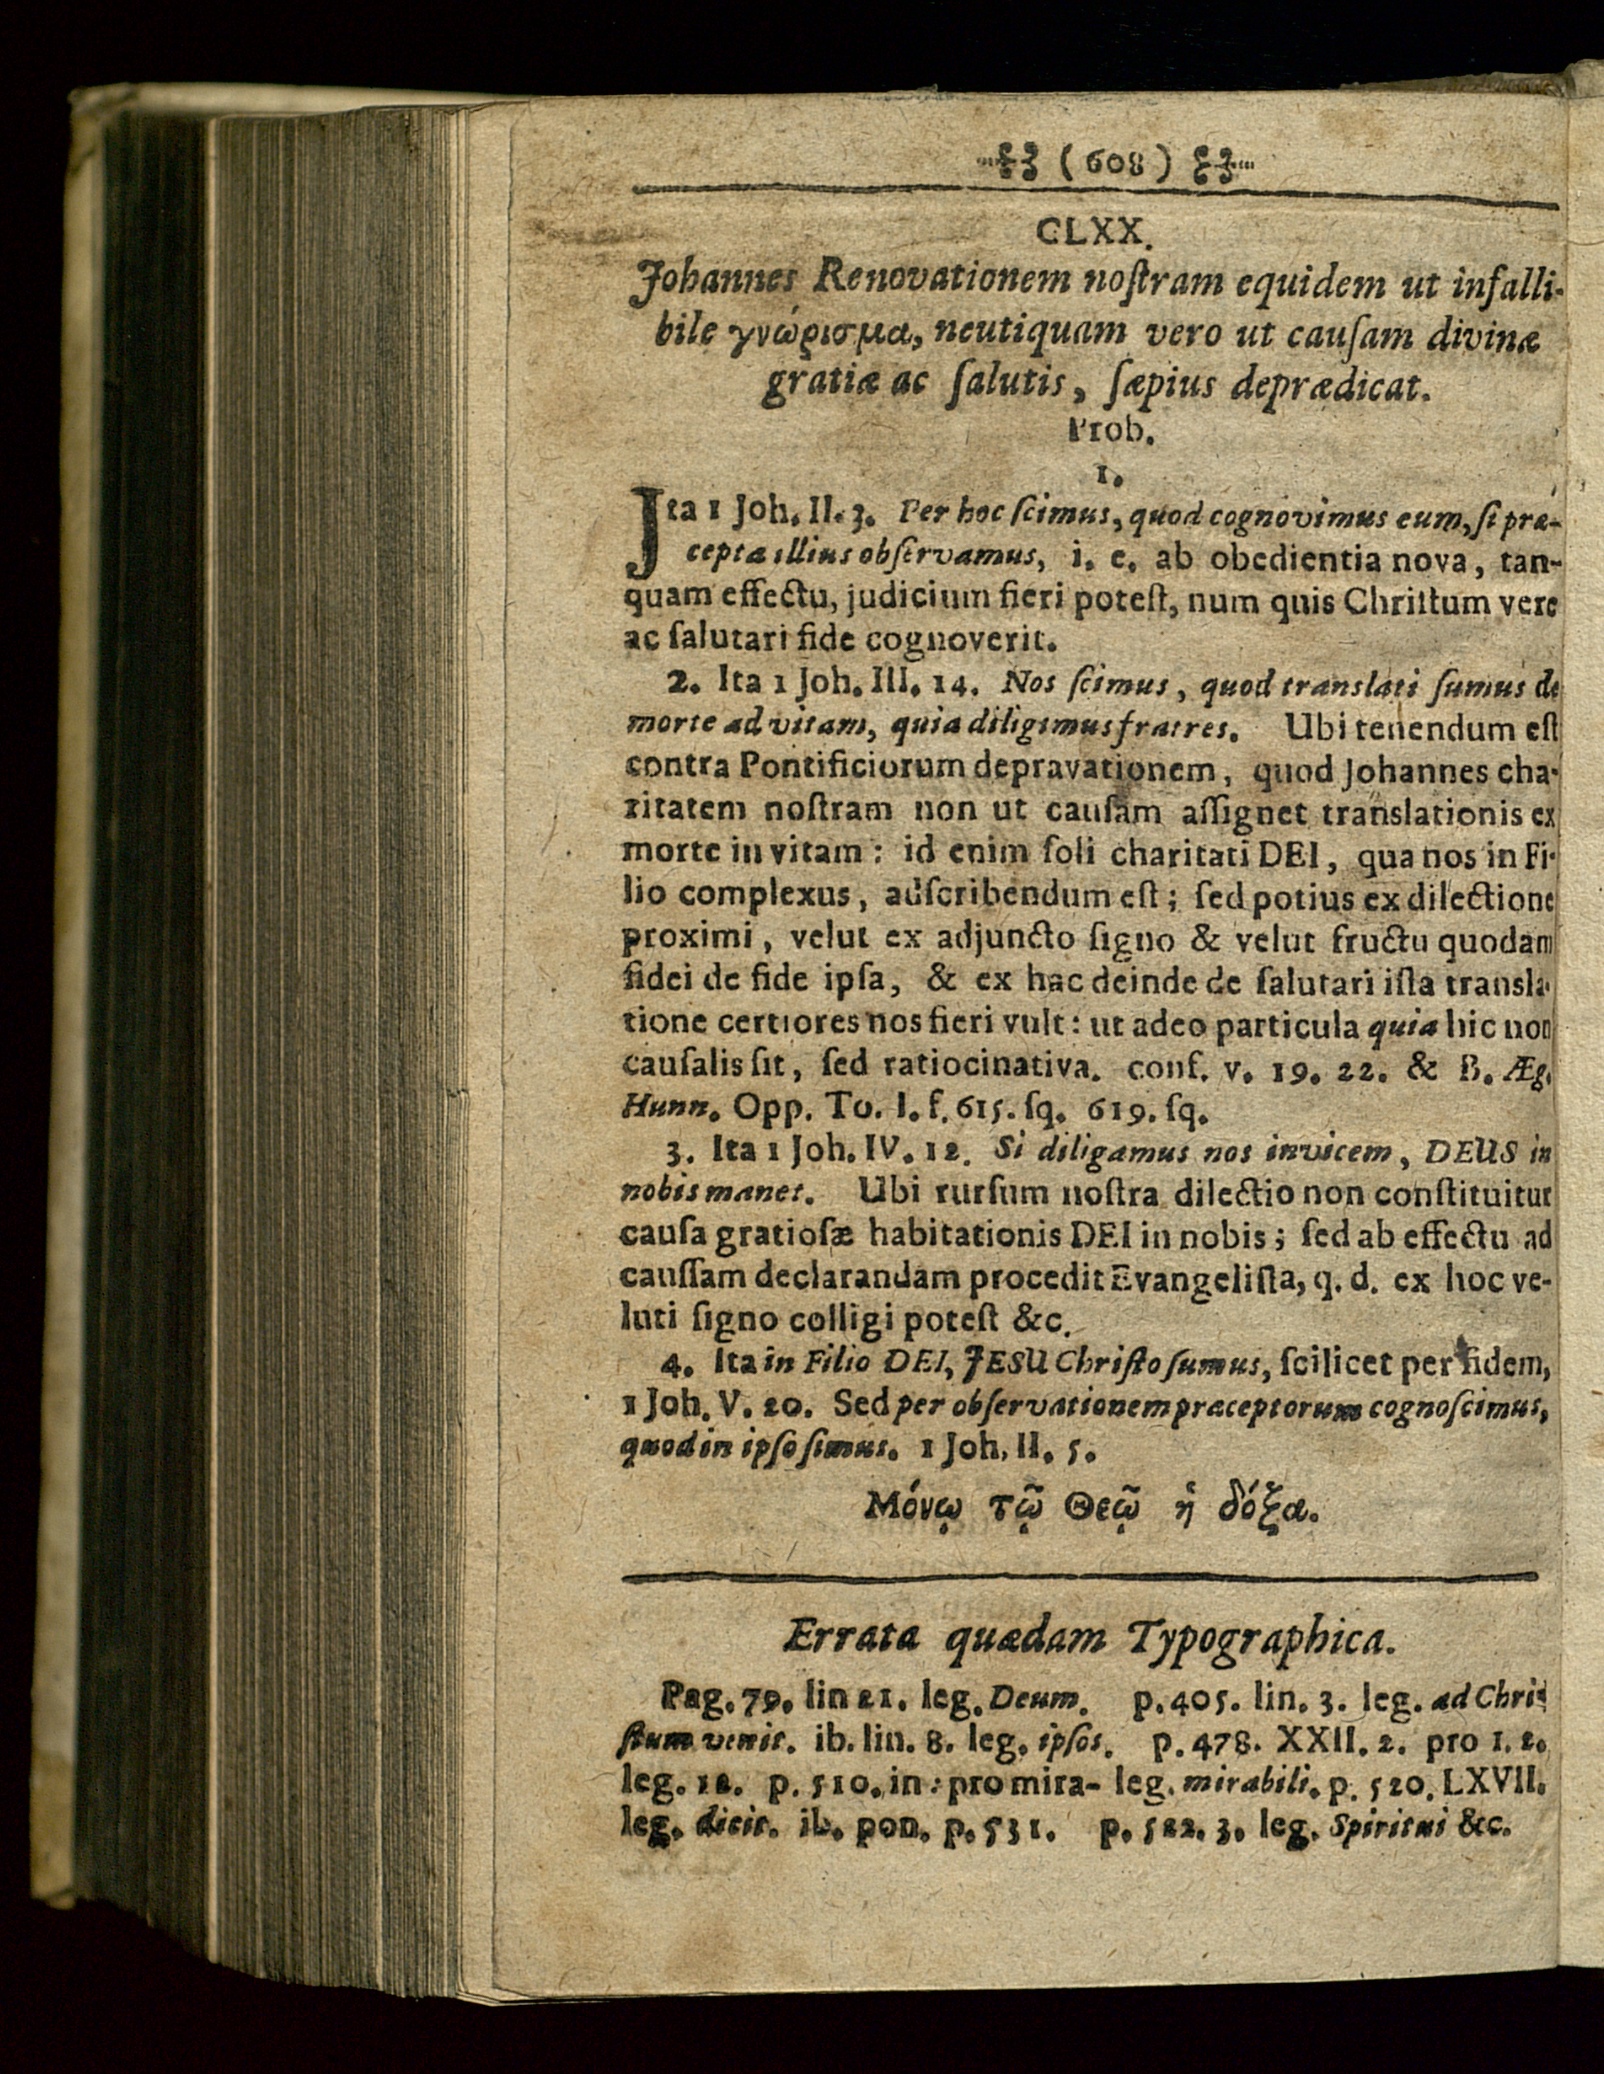 (608)
CLXX.
Johannes Renovationem noſtram equidem ut infalli-
bile γνώρισμα, neutiquam vero ut cauſam divinæ
gratiæ ac ſalutis, ſæpius deprædicat.
Prob.
1.
Jta 1 Joh. II. 3. Per hoc ſcimus, quod cognovimus eum, ſi præ-
cepta illius obſervamus, i. e. ab obedientia nova, tan-
quam effectu, judicium fieri poteſt, num quis Chriſtum vere
ac ſalutari fide cognoverit.
2. Ita 1 Joh. III. 14. Nos ſcimus, quod translati ſumus de
morte ad vitam, quia diligimus fratres. Ubi tenendum eſt
contra Pontificiorum depravationem, quod Johannes cha-
ritatem noſtram non ut cauſam aſſignet translationis ex
morte in vitam: id enim ſoli charitati DEI, qua nos in Fi-
lio complexus, adſcribendum eſt; ſed potius ex dilectione
proximi, velut ex adjuncto ſigno & velut fructu quodam
fidei de fide ipſa, & ex hac deinde de ſalutari iſta transla-
tione certiores nos fieri vult: ut adeo particula quia hic non
cauſalis ſit, ſed ratiocinativa. conf. v. 19. 22. & B. Æg.
Hunn. Opp. To. I. f. 615. ſq. 619. ſq.
3. Ita 1 Joh. IV. 12. Si diligamus nos invicem, DEUS in
nobis manet. Ubi rurſum noſtra dilectio non conſtituitur
cauſa gratioſæ habitationis DEI in nobis; ſed ab effectu ad
cauſſam declarandam procedit Evangeliſta, q. d. ex hoc ve-
luti ſigno colligi poteſt &c.
4. Ita in Filio DEI, JESU Chriſto ſumus, ſcilicet per fidem,
1 Joh. V. 20. Sed per obſervationem præceptorum cognoſcimus,
quod in ipſo ſimus. 1 Joh. II. 5.
Μόνῳ τῷ Θεῷ ἡ δόξα.
Errata quædam Typographica.
Pag. 79. lin 21. leg. Deum. p. 405. lin. 3. leg. ad Chri-
ſtum venit. ib. lin. 8. leg. ipſos. p. 478. XXII. 2. pro 1. 2.
leg. 12. p. 510. in: pro mira- leg. mirabili. p. 520. LXVII.
leg. dicit. ib. pon. p. 531. p. 522. 3. leg. Spiritui &c.